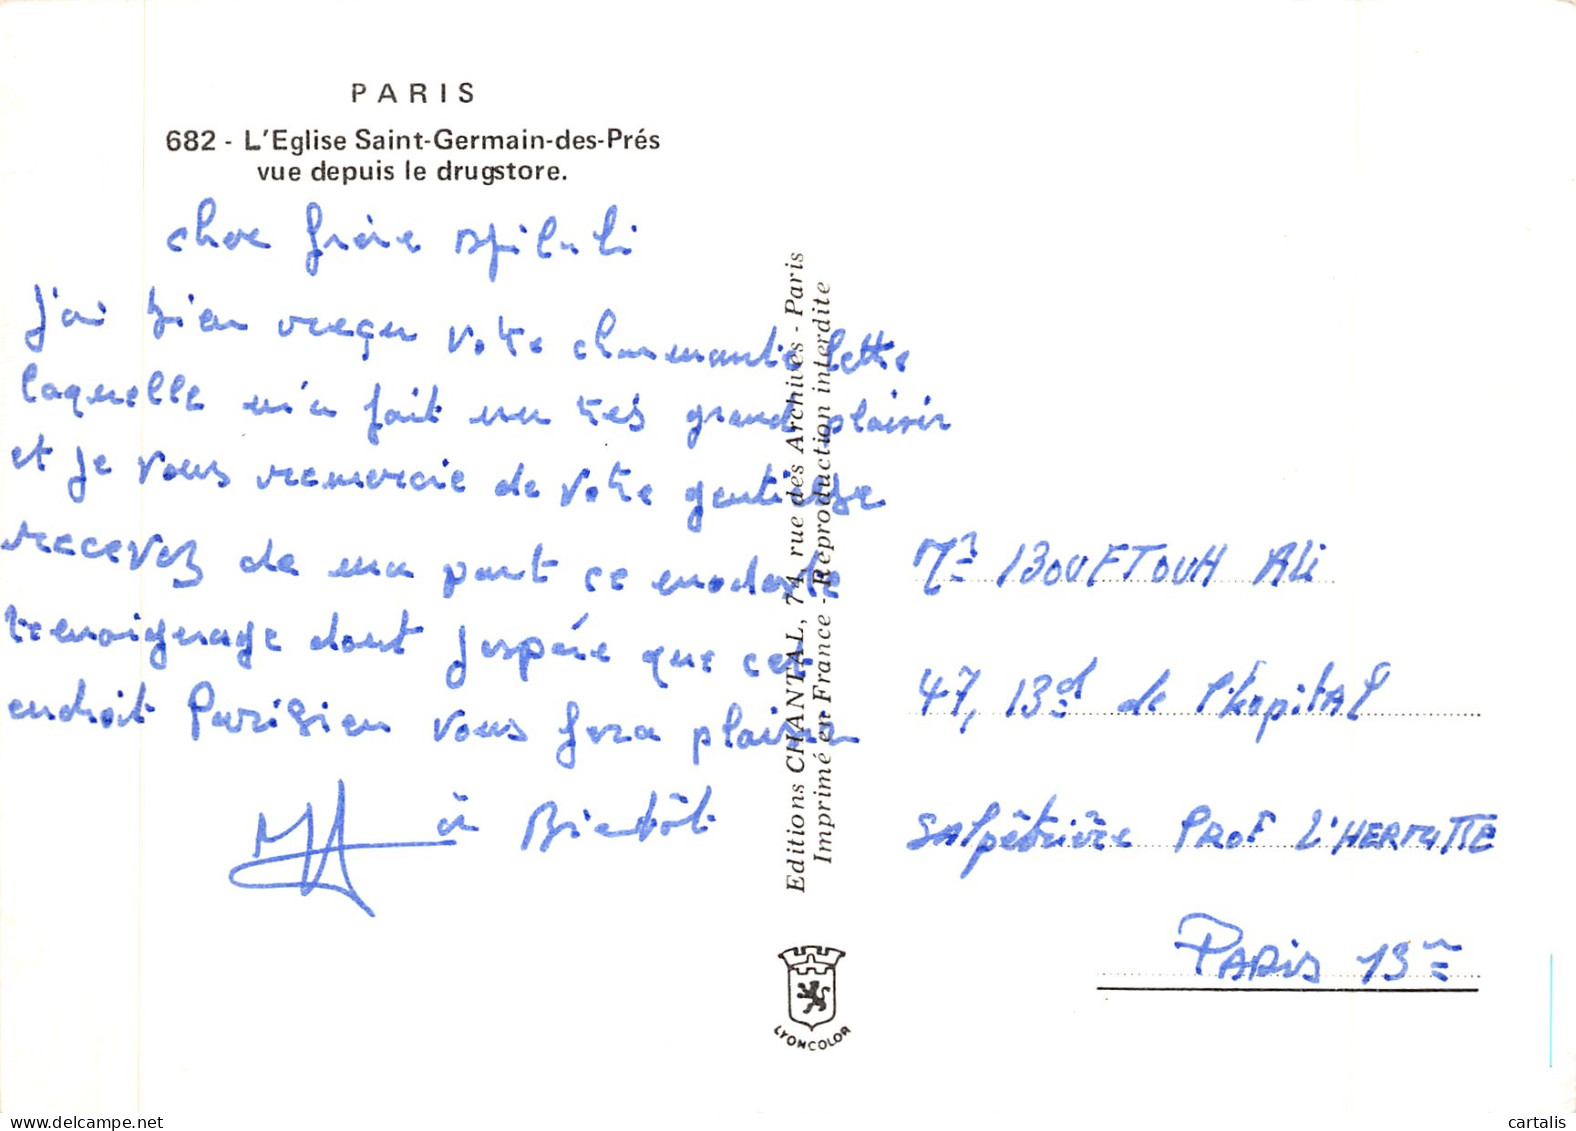 PARIS
682 - L'Eglise Saint-Germain-des-Prés
vue depuis le drugstore.
cher frère
j'ai bien reçu votre charmante lettre
laquelle m'a fait un tres grand plaisir
et je vous remercie de votre gentillesse
recevez de ma part ce modeste
temoignage dont j'espére que cet
endroit Parisien vous fera plaisir
à Bientôt
Editions CHANTAL, 74, rue des Archives - Paris
Imprimé en France - Reproduction interdite
LYONCOLOR
Mr BOUFTOUH Ali
47, Bd de l'hopital
Salpêtrière PROF L'HERMITTE
PARIS 13
www.delcampe.net
cartalis